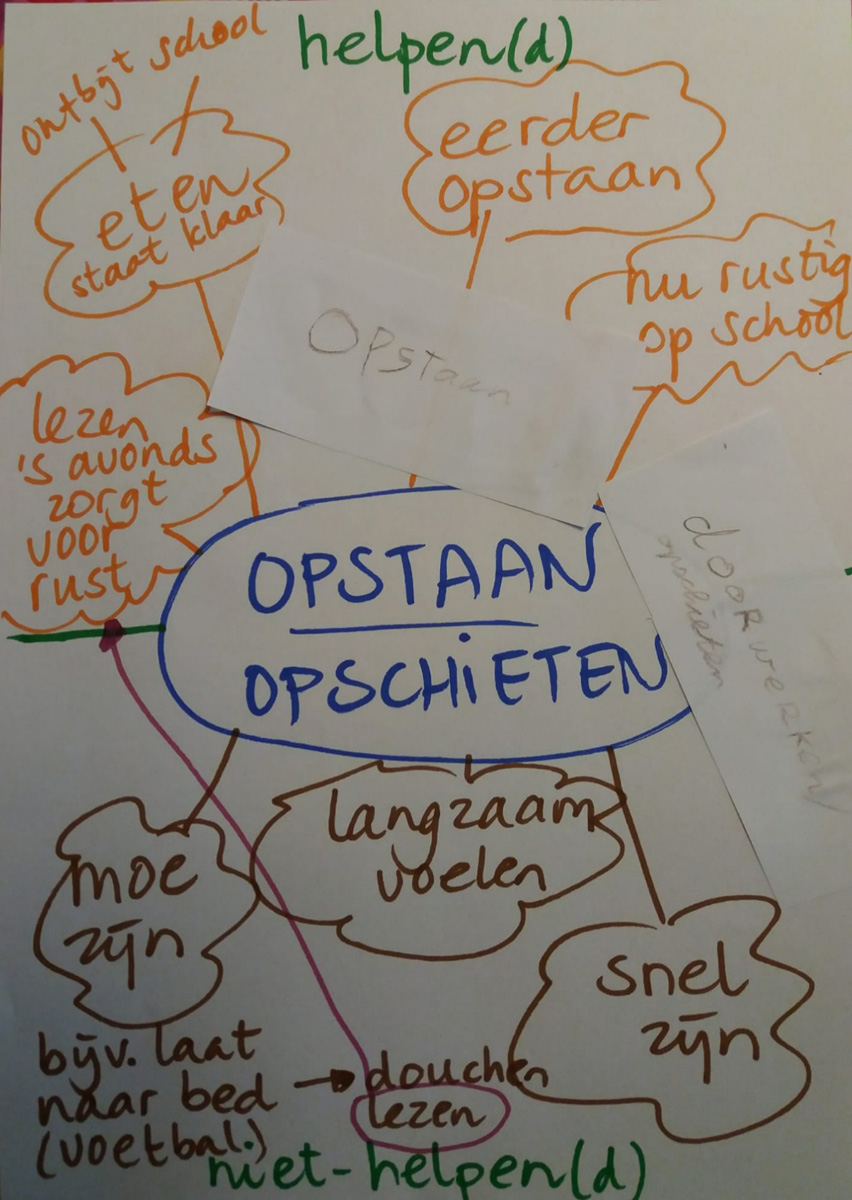 helpen(d)
ontbijt school
eten
staat klaar
eerder
opstaan
nu rustig
op school
Opstaan
lezen
's avonds
zorgt
voor
rust
OPSTAAN
OPSCHIETEN
dOORweRKen
opschieten
moe
zijn
langzaam
voelen
snel
zijn
bijv. laat
naar bed
(voetbal.)
douchen
lezen
niet-helpen(d)